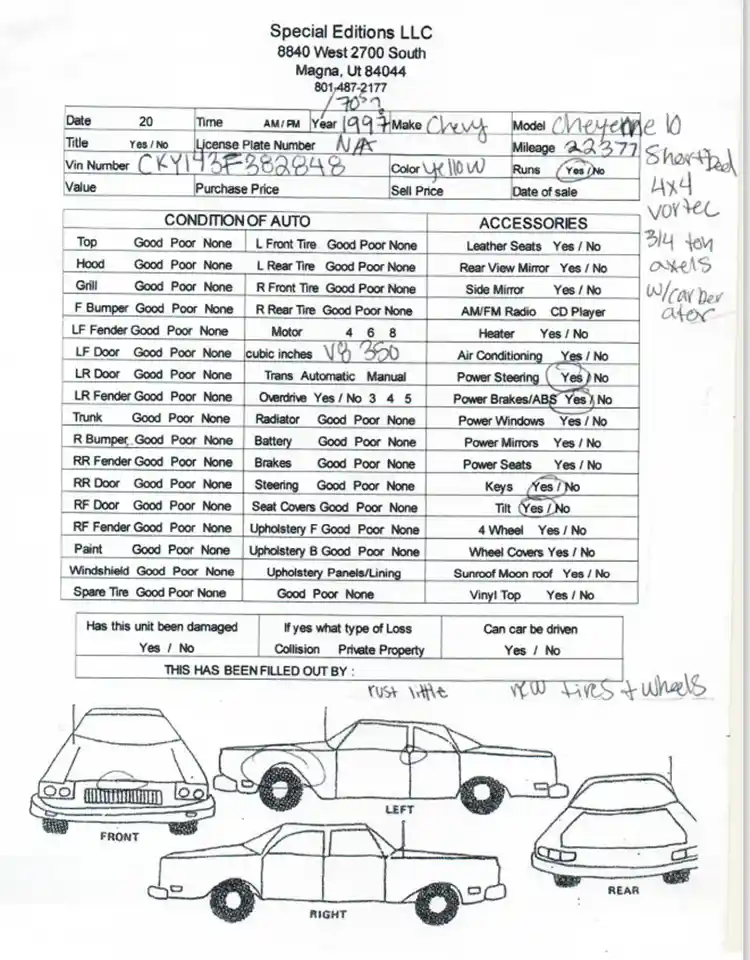 Special Editions LLC
8840 West 2700 South
Magna, Ut 84044
801-487-2177
70's ?
Date 20 Time AM/PM Year 1997 Make Chevy Model Cheyenne 10
Title Yes / No License Plate Number N/A Mileage 22377
Vin Number CKY143F382848 Color Yellow Runs Yes / No
Value Purchase Price Sell Price Date of sale
Short bed
4x4
vortec
3/4 ton
axels
w/carber
ator
CONDITION OF AUTO ACCESSORIES
Top Good Poor None L Front Tire Good Poor None Leather Seats Yes / No
Hood Good Poor None L Rear Tire Good Poor None Rear View Mirror Yes / No
Grill Good Poor None R Front Tire Good Poor None Side Mirror Yes / No
F Bumper Good Poor None R Rear Tire Good Poor None AM/FM Radio CD Player
LF Fender Good Poor None Motor 4 6 8 Heater Yes / No
LF Door Good Poor None cubic inches V8 350 Air Conditioning Yes / No
LR Door Good Poor None Trans Automatic Manual Power Steering Yes / No
LR Fender Good Poor None Overdrive Yes / No 3 4 5 Power Brakes/ABS Yes / No
Trunk Good Poor None Radiator Good Poor None Power Windows Yes / No
R Bumper Good Poor None Battery Good Poor None Power Mirrors Yes / No
RR Fender Good Poor None Brakes Good Poor None Power Seats Yes / No
RR Door Good Poor None Steering Good Poor None Keys Yes / No
RF Door Good Poor None Seat Covers Good Poor None Tilt Yes / No
RF Fender Good Poor None Upholstery F Good Poor None 4 Wheel Yes / No
Paint Good Poor None Upholstery B Good Poor None Wheel Covers Yes / No
Windshield Good Poor None Upholstery Panels/Lining Sunroof Moon roof Yes / No
Spare Tire Good Poor None Good Poor None Vinyl Top Yes / No
Has this unit been damaged If yes what type of Loss Can car be driven
Yes / No Collision Private Property Yes / No
THIS HAS BEEN FILLED OUT BY :
rust little new tires + wheels
FRONT
LEFT
RIGHT
REAR